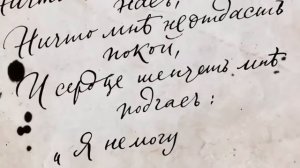 Ничто мнѣ не отдастъ
покой,
И сердце шепчетъ мнѣ
подчасъ:
„Я не могу